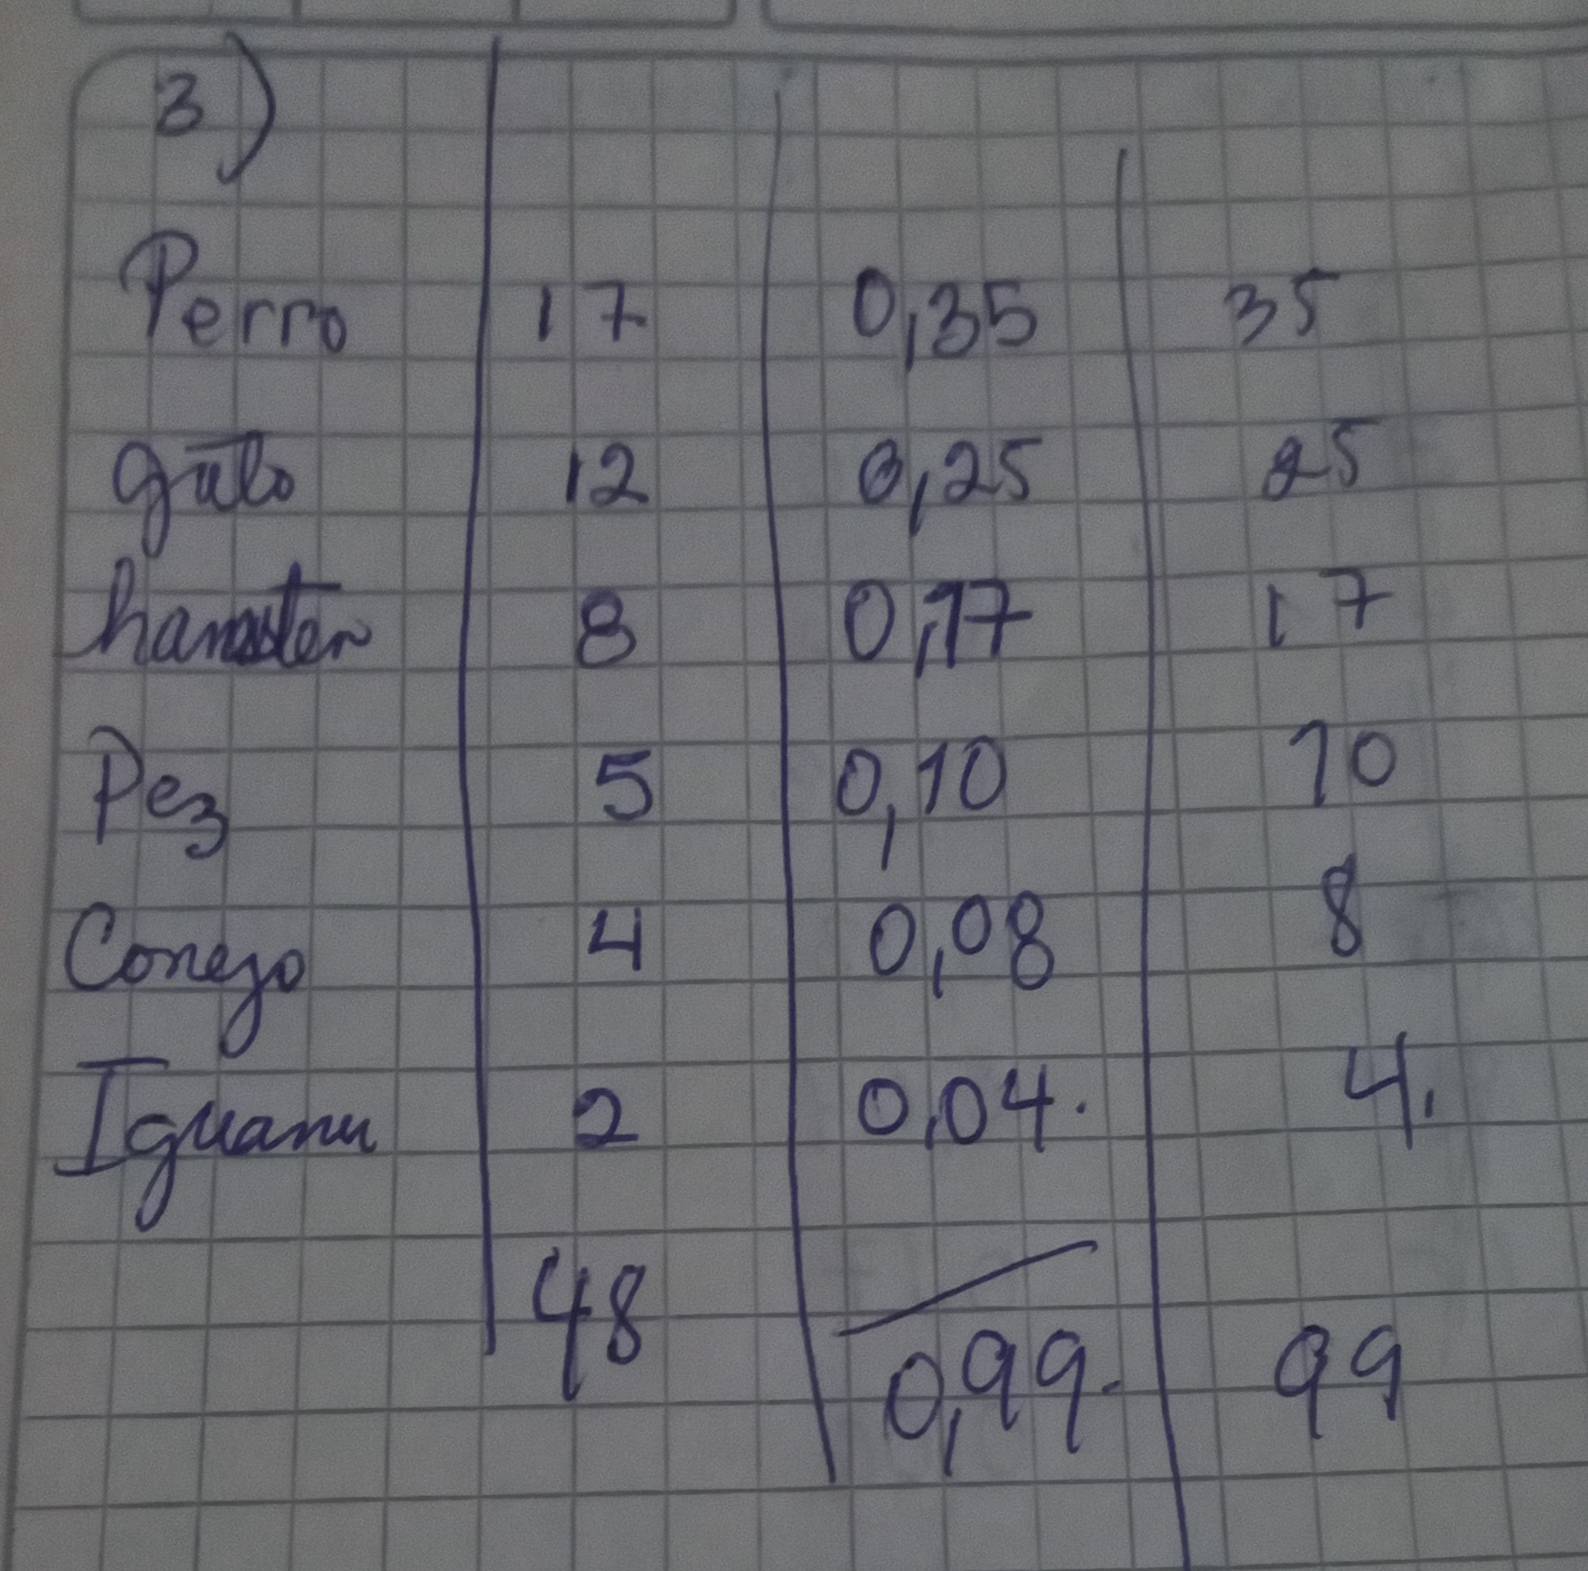 3)
Perro 17 0,35 35
gato 12 0,25 25
hamster 8 0,17 17
Pez 5 0,10 10
Conejo 4 0,08 8
Iguana 2 0,04. 4.
48 0,99. 99